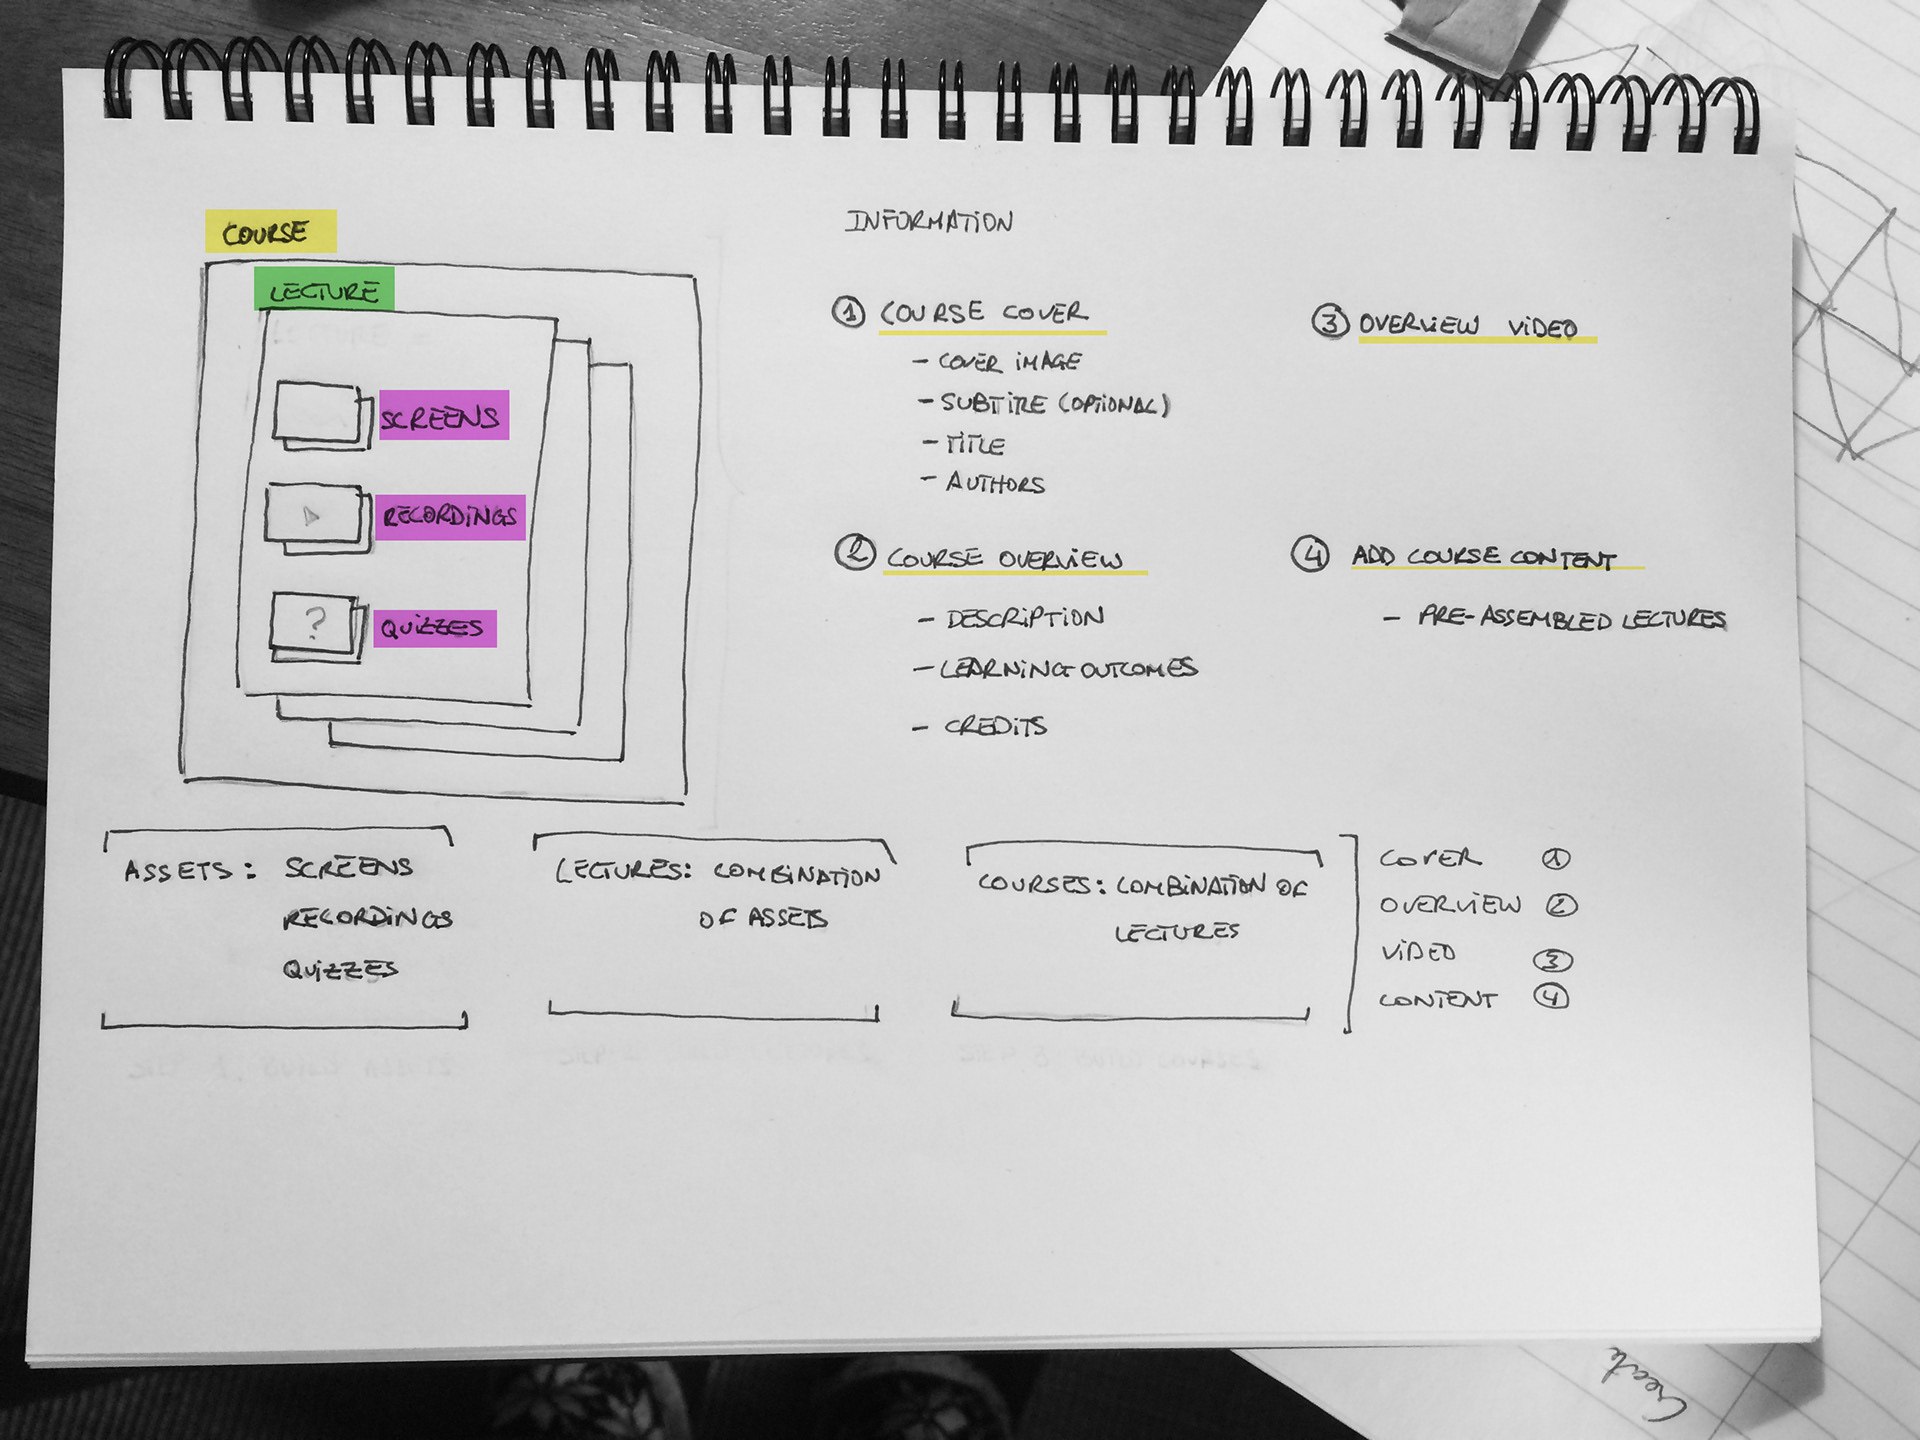 COURSE
LECTURE
SCREENS
RECORDINGS
?
QUIZZES
INFORMATION
1 COURSE COVER
- COVER IMAGE
- SUBTITLE (OPTIONAL)
- TITLE
- AUTHORS
2 COURSE OVERVIEW
- DESCRIPTION
- LEARNING OUTCOMES
- CREDITS
3 OVERVIEW VIDEO
4 ADD COURSE CONTENT
- PRE-ASSEMBLED LECTURES
ASSETS: SCREENS
RECORDINGS
QUIZZES
LECTURES: COMBINATION
OF ASSETS
COURSES: COMBINATION OF
LECTURES
COVER 1
OVERVIEW 2
VIDEO 3
CONTENT 4
Create